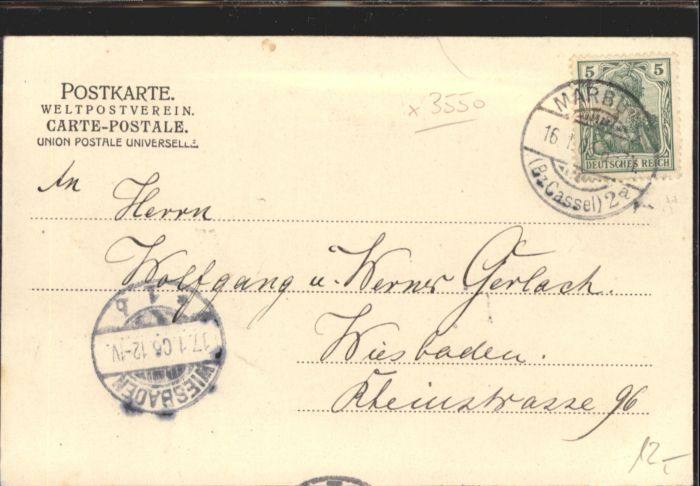 POSTKARTE.
WELTPOSTVEREIN.
CARTE-POSTALE.
UNION POSTALE UNIVERSELLE
x 3550
5 5
DEUTSCHES REICH
MARB
16. 1.
(Bz Cassel) 2a
An
Herrn
Wolfgang u. Werner Gerlach.
Wiesbaden.
Kleinstrasse 96
* 1 b
17.1.06.12-1V.
WIESBADEN
12,-